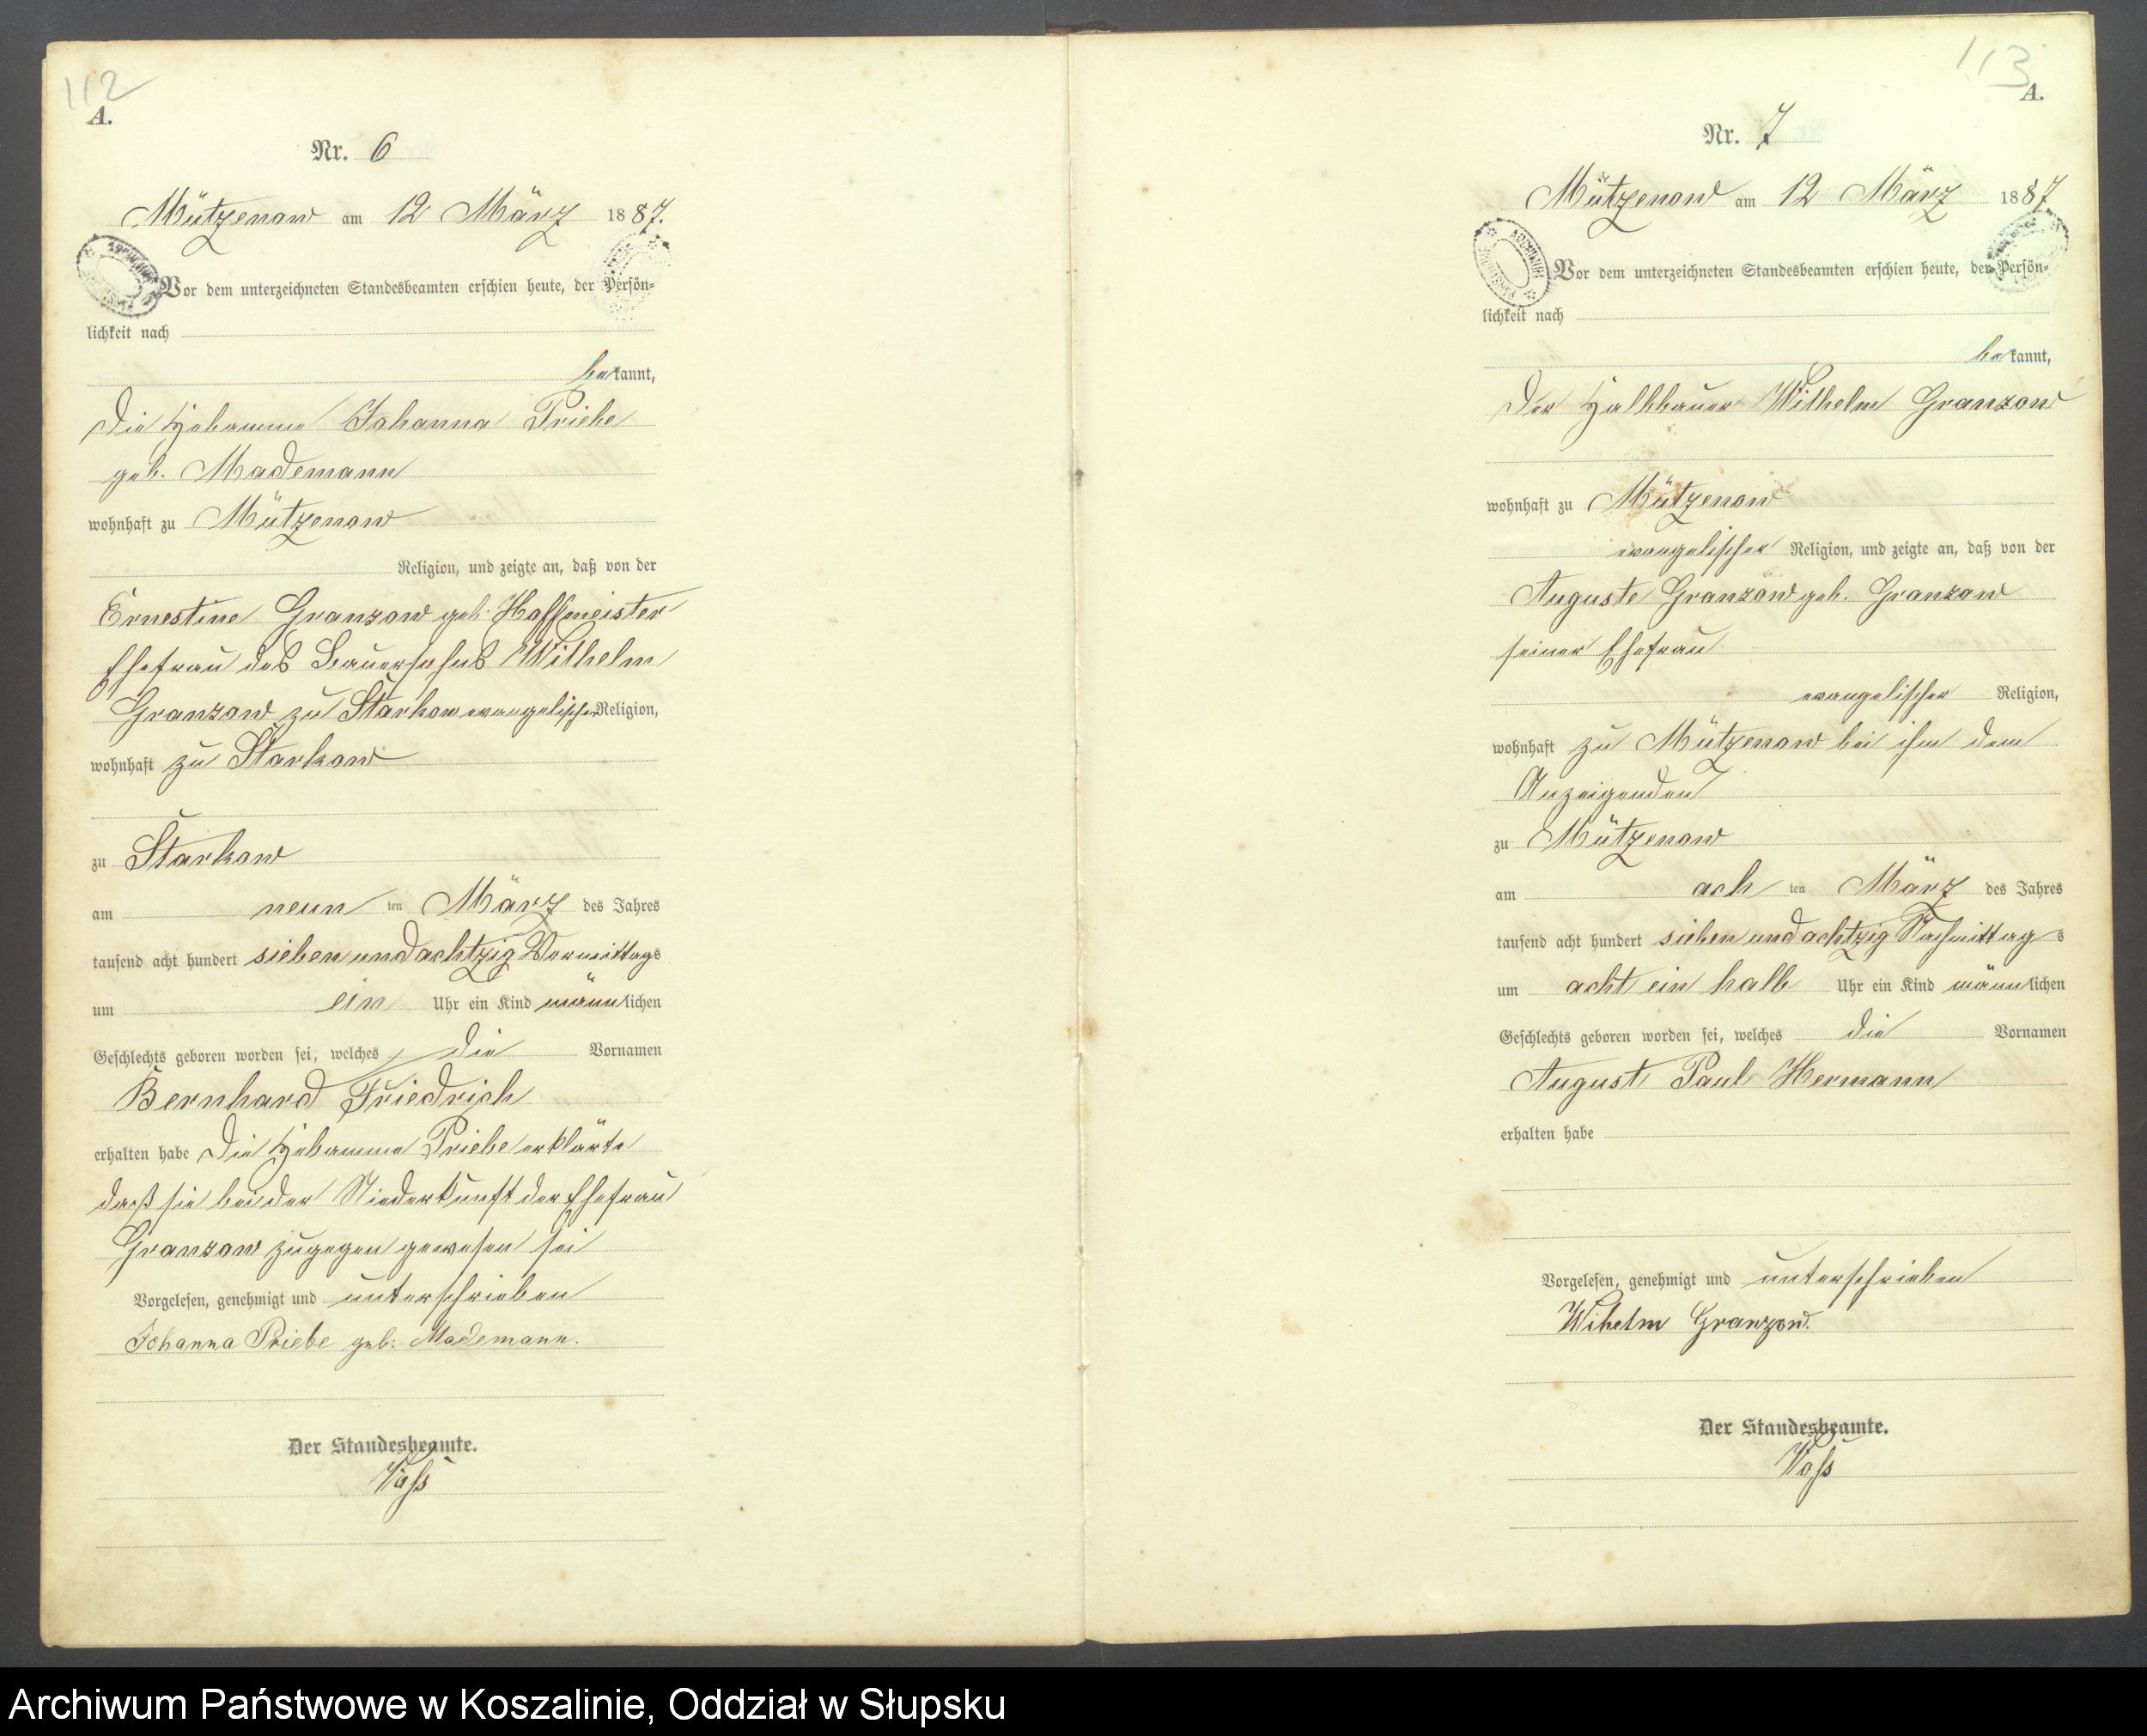 112
A.
Nr. 6
Mützenow am 12 März 1887.
Vor dem unterzeichneten Standesbeamten erschien heute, der Persön-
lichkeit nach
bekannt,
die Hebamme Johanna Priebe
geb. Mademann
wohnhaft zu Mützenow
Religion, und zeigte an, daß von der
Ernestine Granzow geb. Hoffmeister
Ehefrau des Bauersohns Wilhelm
Granzow zu Starkow evangelischer Religion,
wohnhaft zu Starkow
zu Starkow
am neun ten März des Jahres
tausend acht hundert sieben und achtzig Vormittags
um ein Uhr ein Kind männlichen
Geschlechts geboren worden sei, welches die Vornamen
Bernhard Friedrich
erhalten habe Die Hebamme Priebe erklärte
daß sie bei der Niederkunft der Ehefrau
Granzow zugegen gewesen sei
Vorgelesen, genehmigt und unterschrieben
Johanna Priebe geb: Mademann.
Der Standesbeamte.
Voß
113
A.
Nr. 7
Mützenow am 12 März 1887
Vor dem unterzeichneten Standesbeamten erschien heute, der Persön-
lichkeit nach
bekannt,
Der Halbbauer Wilhelm Granzow
wohnhaft zu Mützenow
evangelischer Religion, und zeigte an, daß von der
Auguste Granzow geb. Granzow
seiner Ehefrau
evangelischer Religion,
wohnhaft zu Mützenow bei ihm dem
Anzeigenden
zu Mützenow
am ach ten März des Jahres
tausend acht hundert sieben und achtzig Nachmittags
um acht ein halb Uhr ein Kind männlichen
Geschlechts geboren worden sei, welches die Vornamen
August Paul Hermann
erhalten habe
Vorgelesen, genehmigt und unterschrieben
Wihelm Granzow.
Der Standesbeamte.
Voß
Archiwum Państwowe w Koszalinie, Oddział w Słupsku